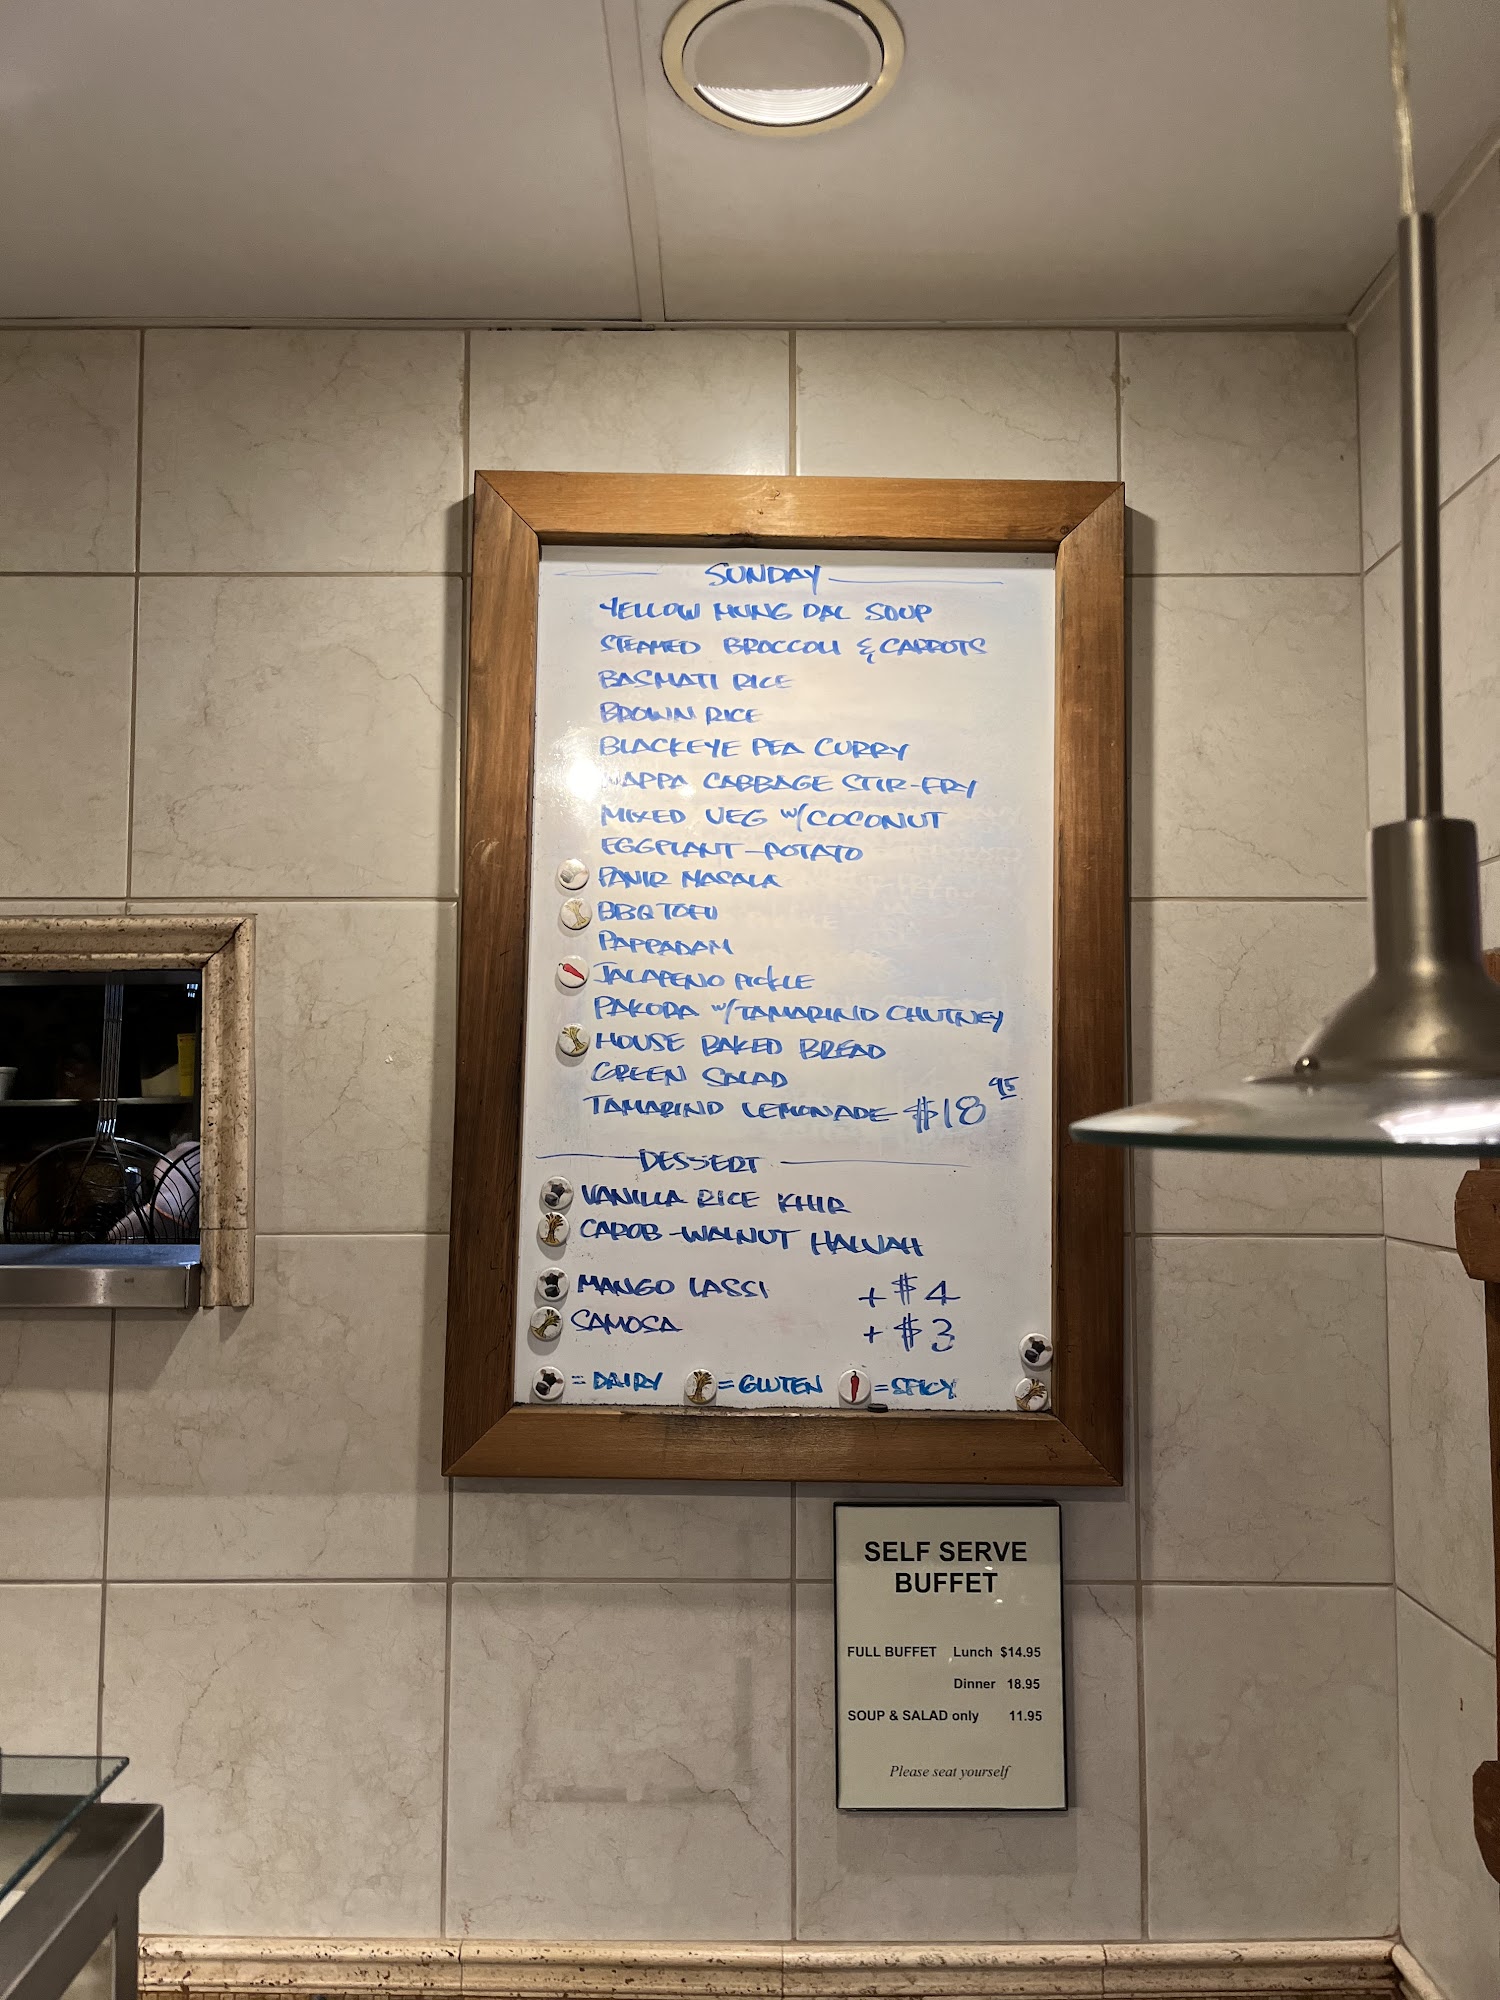 SUNDAY
YELLOW MUNG DAL SOUP
STEAMED BROCCOLI & CARROTS
BASMATI RICE
BROWN RICE
BLACKEYE PEA CURRY
NAPPA CABBAGE STIR-FRY
MIXED VEG w/COCONUT
EGGPLANT-POTATO
PANIR MASALA
BBQ TOFU
PAPPADAM
JALAPENO PICKLE
PAKORA w/TAMARIND CHUTNEY
HOUSE BAKED BREAD
GREEN SALAD
TAMARIND LEMONADE $18 95
DESSERT
VANILLA RICE KHIR
CAROB-WALNUT HALVAH
MANGO LASSI +$4
SAMOSA +$3
=DAIRY =GLUTEN =SPICY
SELF SERVE
BUFFET
FULL BUFFET Lunch $14.95
Dinner 18.95
SOUP & SALAD only 11.95
Please seat yourself